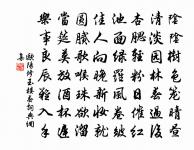 陰陰樹色籠晴晝
清淡園林春過後
杏腮輕粉日催紅
池面綠羅風卷皺
佳人向晚新妝就
圓膩歌喉珠欲溜
當筵莫放酒杯遲
樂事良辰難入手
歐陽修玉樓春詞典網
集